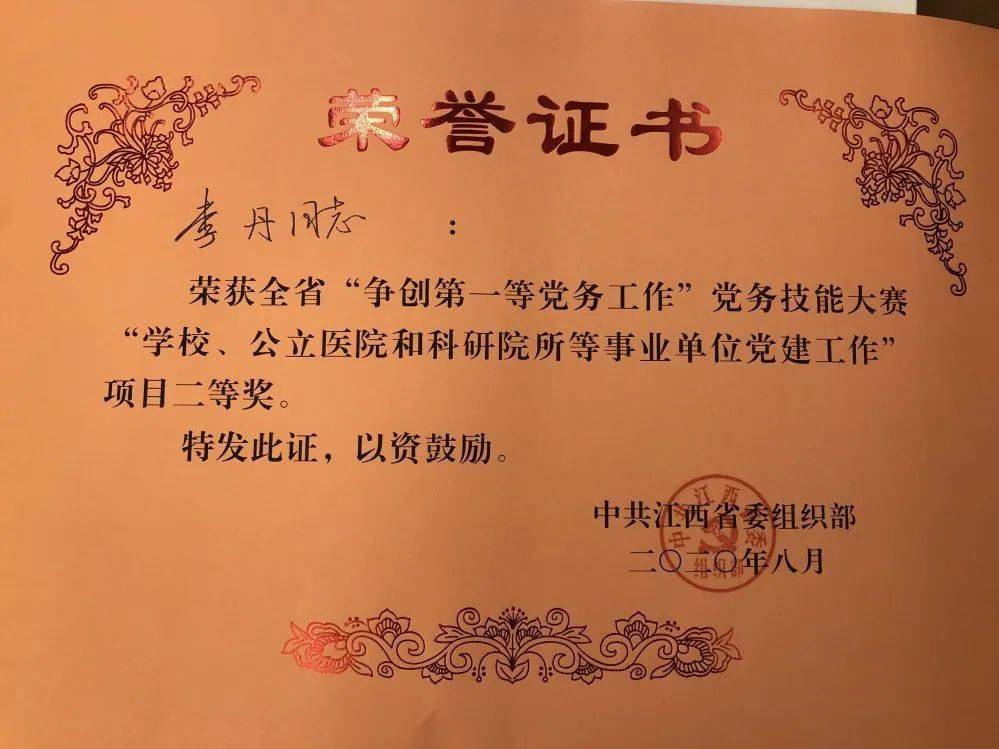 荣誉证书
李丹同志：
荣获全省“争创第一等党务工作”党务技能大赛
“学校、公立医院和科研院所等事业单位党建工作”
项目二等奖。
特发此证，以资鼓励。
中共江西省委组织部
二〇二〇年八月
中共江西省委
组织部